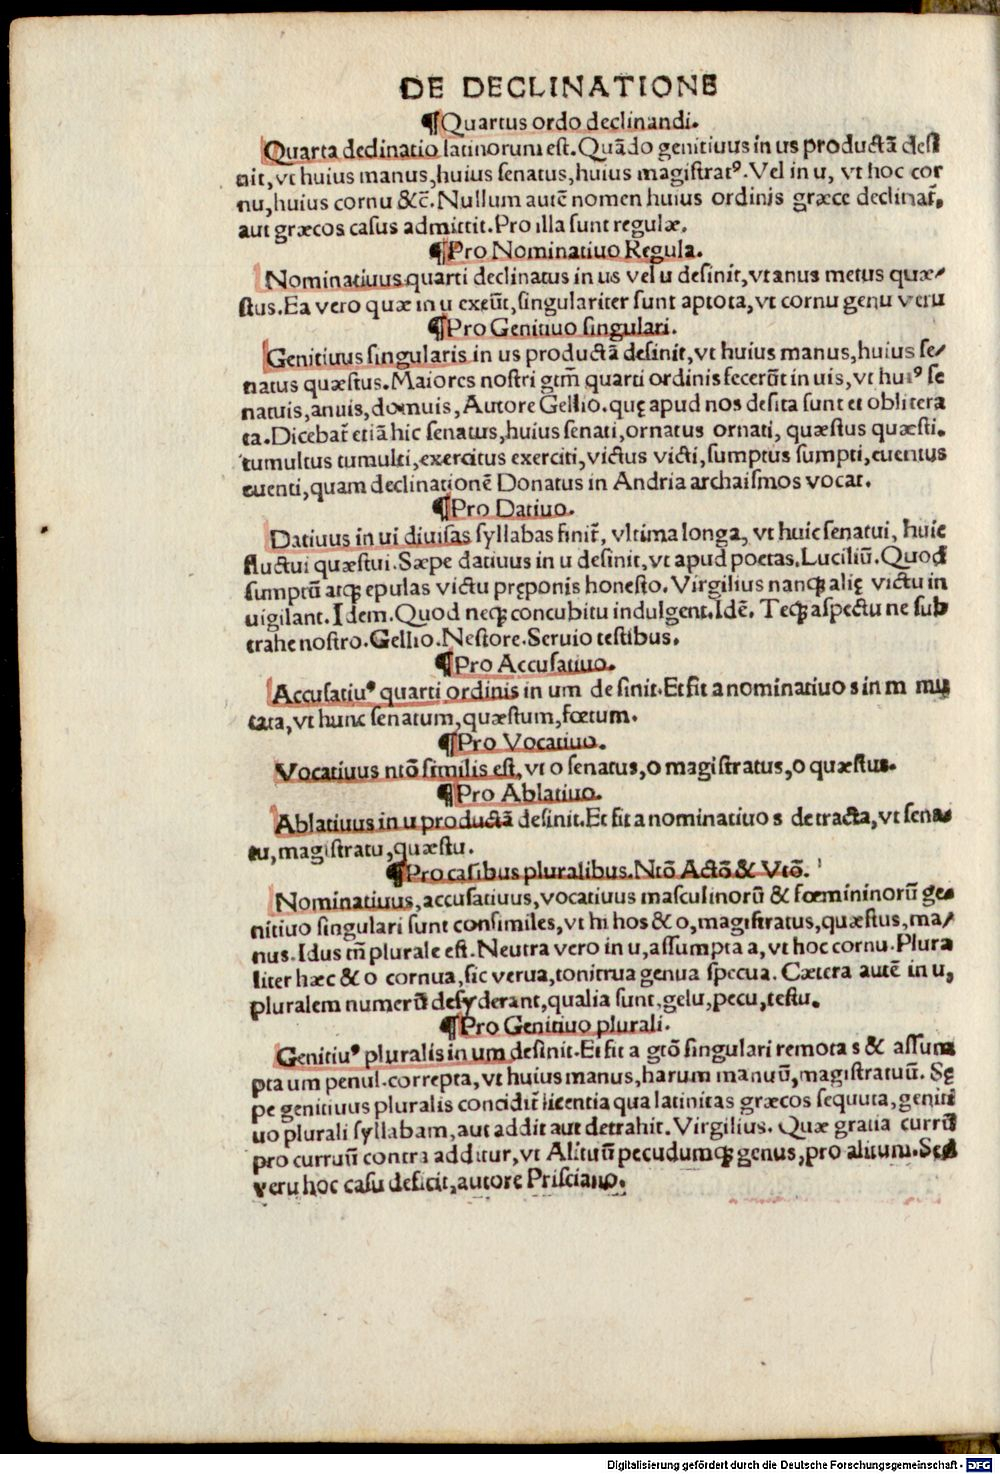 DE DECLINATIONE
¶Quartus ordo declinandi.
Quarta declinatio latinorum est. Quãdo genitiuus in us productã desi
nit, vt huius manus, huius senatus, huius magistratꝰ. Vel in u, vt hoc cor
nu, huius cornu &c̃. Nullum autẽ nomen huius ordinis græce declinat̃,
aut græcos casus admittit. Pro illa sunt regulæ.
¶Pro Nominatiuo Regula.
Nominatiuus quarti declinatus in us vel u desinit, vt anus metus quæ/
stus. Ea vero quæ in u exeũt, singulariter sunt aptota, vt cornu genu veru
¶Pro Genitiuo singulari.
Genitiuus singularis in us productã desinit, vt huius manus, huius se/
natus quæstus. Maiores nostri gtm̃ quarti ordinis fecerũt in uis, vt huiꝰ se
natuis, anuis, domuis, Autore Gellio. quę apud nos desita sunt et oblitera
ta. Dicebat̃ etiã hic senatus, huius senati, ornatus ornati, quæstus quæsti.
tumultus tumulti, exercitus exerciti, victus victi, sumptus sumpti, euentus
euenti, quam declinationẽ Donatus in Andria archaismos vocat.
¶Pro Datiuo.
Datiuus in ui diuisas syllabas finit̃, vltima longa, vt huic senatui, huic
fluctui quæstui. Sæpe datiuus in u desinit, vt apud poetas. Luciliũ. Quod
sumptũ atqꝫ epulas victu pręponis honesto. Virgilius nanqꝫ alię victu in
uigilant. Idem. Quod neqꝫ concubitu indulgent. Idẽ. Teqꝫ aspectu ne sub
trahe nostro. Gellio. Nestore. Seruio testibus.
¶Pro Accusatiuo.
Accusatiuꝰ quarti ordinis in um desinit. Et fit a nominatiuo s in m mu
tata, vt hunc senatum, quæstum, fœtum.
¶Pro Vocatiuo.
Vocatiuus ntõ similis est, vt o senatus, o magistratus, o quæstus.
¶Pro Ablatiuo.
Ablatiuus in u productã desinit. Et fit a nominatiuo s detracta, vt sena
tu, magistratu, quæstu.
¶Pro casibus pluralibus. Ntõ Actõ & Vtõ.
Nominatiuus, accusatiuus, vocatiuus masculinorũ & fœmininorũ ge
nitiuo singulari sunt consimiles, vt hi hos & o, magistratus, quæstus, ma/
nus. Idus tm̃ plurale est. Neutra vero in u, assumpta a, vt hoc cornu. Plura
liter hæc & o cornua, sic verua, tonitrua genua specua. Cætera autẽ in u,
pluralem numerũ desyderant, qualia sunt, gelu, pecu, testu.
¶Pro Genitiuo plurali.
Genitiuꝰ pluralis in um desinit. Et fit a gtõ singulari remota s & assum
pta um penul. correpta, vt huius manus, harum manuũ, magistratuũ. Sę
pe genitiuus pluralis concidit̃ licentia qua latinitas græcos sequuta, geniti
uo plurali syllabam, aut addit aut detrahit. Virgilius. Quæ gratia currũ
pro curruũ contra additur, vt Alituũ pecudumqꝫ genus, pro alitum. Sed
veru hoc casu deficit, autore Prisciano.
Digitalisierung gefördert durch die Deutsche Forschungsgemeinschaft - DFG